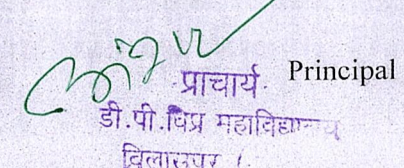 प्राचार्य Principal
डी.पी.विप्र महाविद्यालय
बिलासपुर